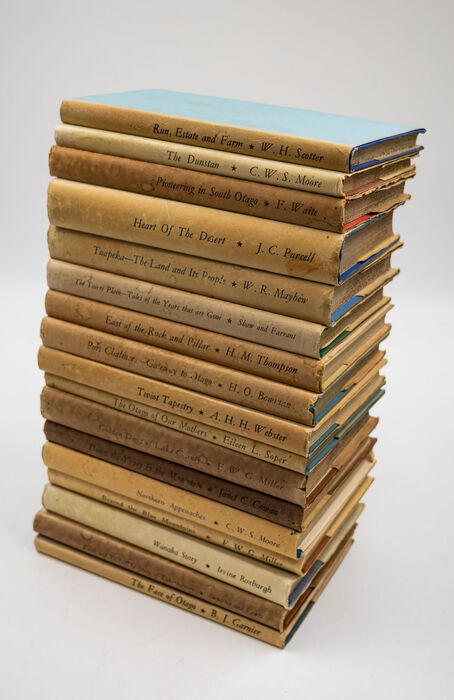 Run, Estate and Farm ★ W. H. Scotter
The Dunstan ★ C. W. S. Moore
Pioneering in South Otago ★ F. Waite
Heart Of The Desert ★ J. C. Parcell
Tuapeka—The Land and Its People ★ W. R. Mayhew
The Taieri Plain—Tales of the Years that are Gone ★ Shaw and Farrant
East of the Rock and Pillar ★ H. M. Thompson
Port Chalmers—Gateway to Otago ★ H. O. Bowman
Teviot Tapestry ★ A. H. H. Webster
The Otago of Our Mothers ★ Eileen L. Soper
Golden Days of Lake County ★ F. W. G. Miller
Down the Years in the Maniototo ★ Janet C. Cowan
Northern Approaches ★ C. W. S. Moore
Beyond the Blue Mountains ★ F. W. G. Miller
Wanaka Story ★ Irvine Roxburgh
The Face of Otago ★ B. J. Garnier